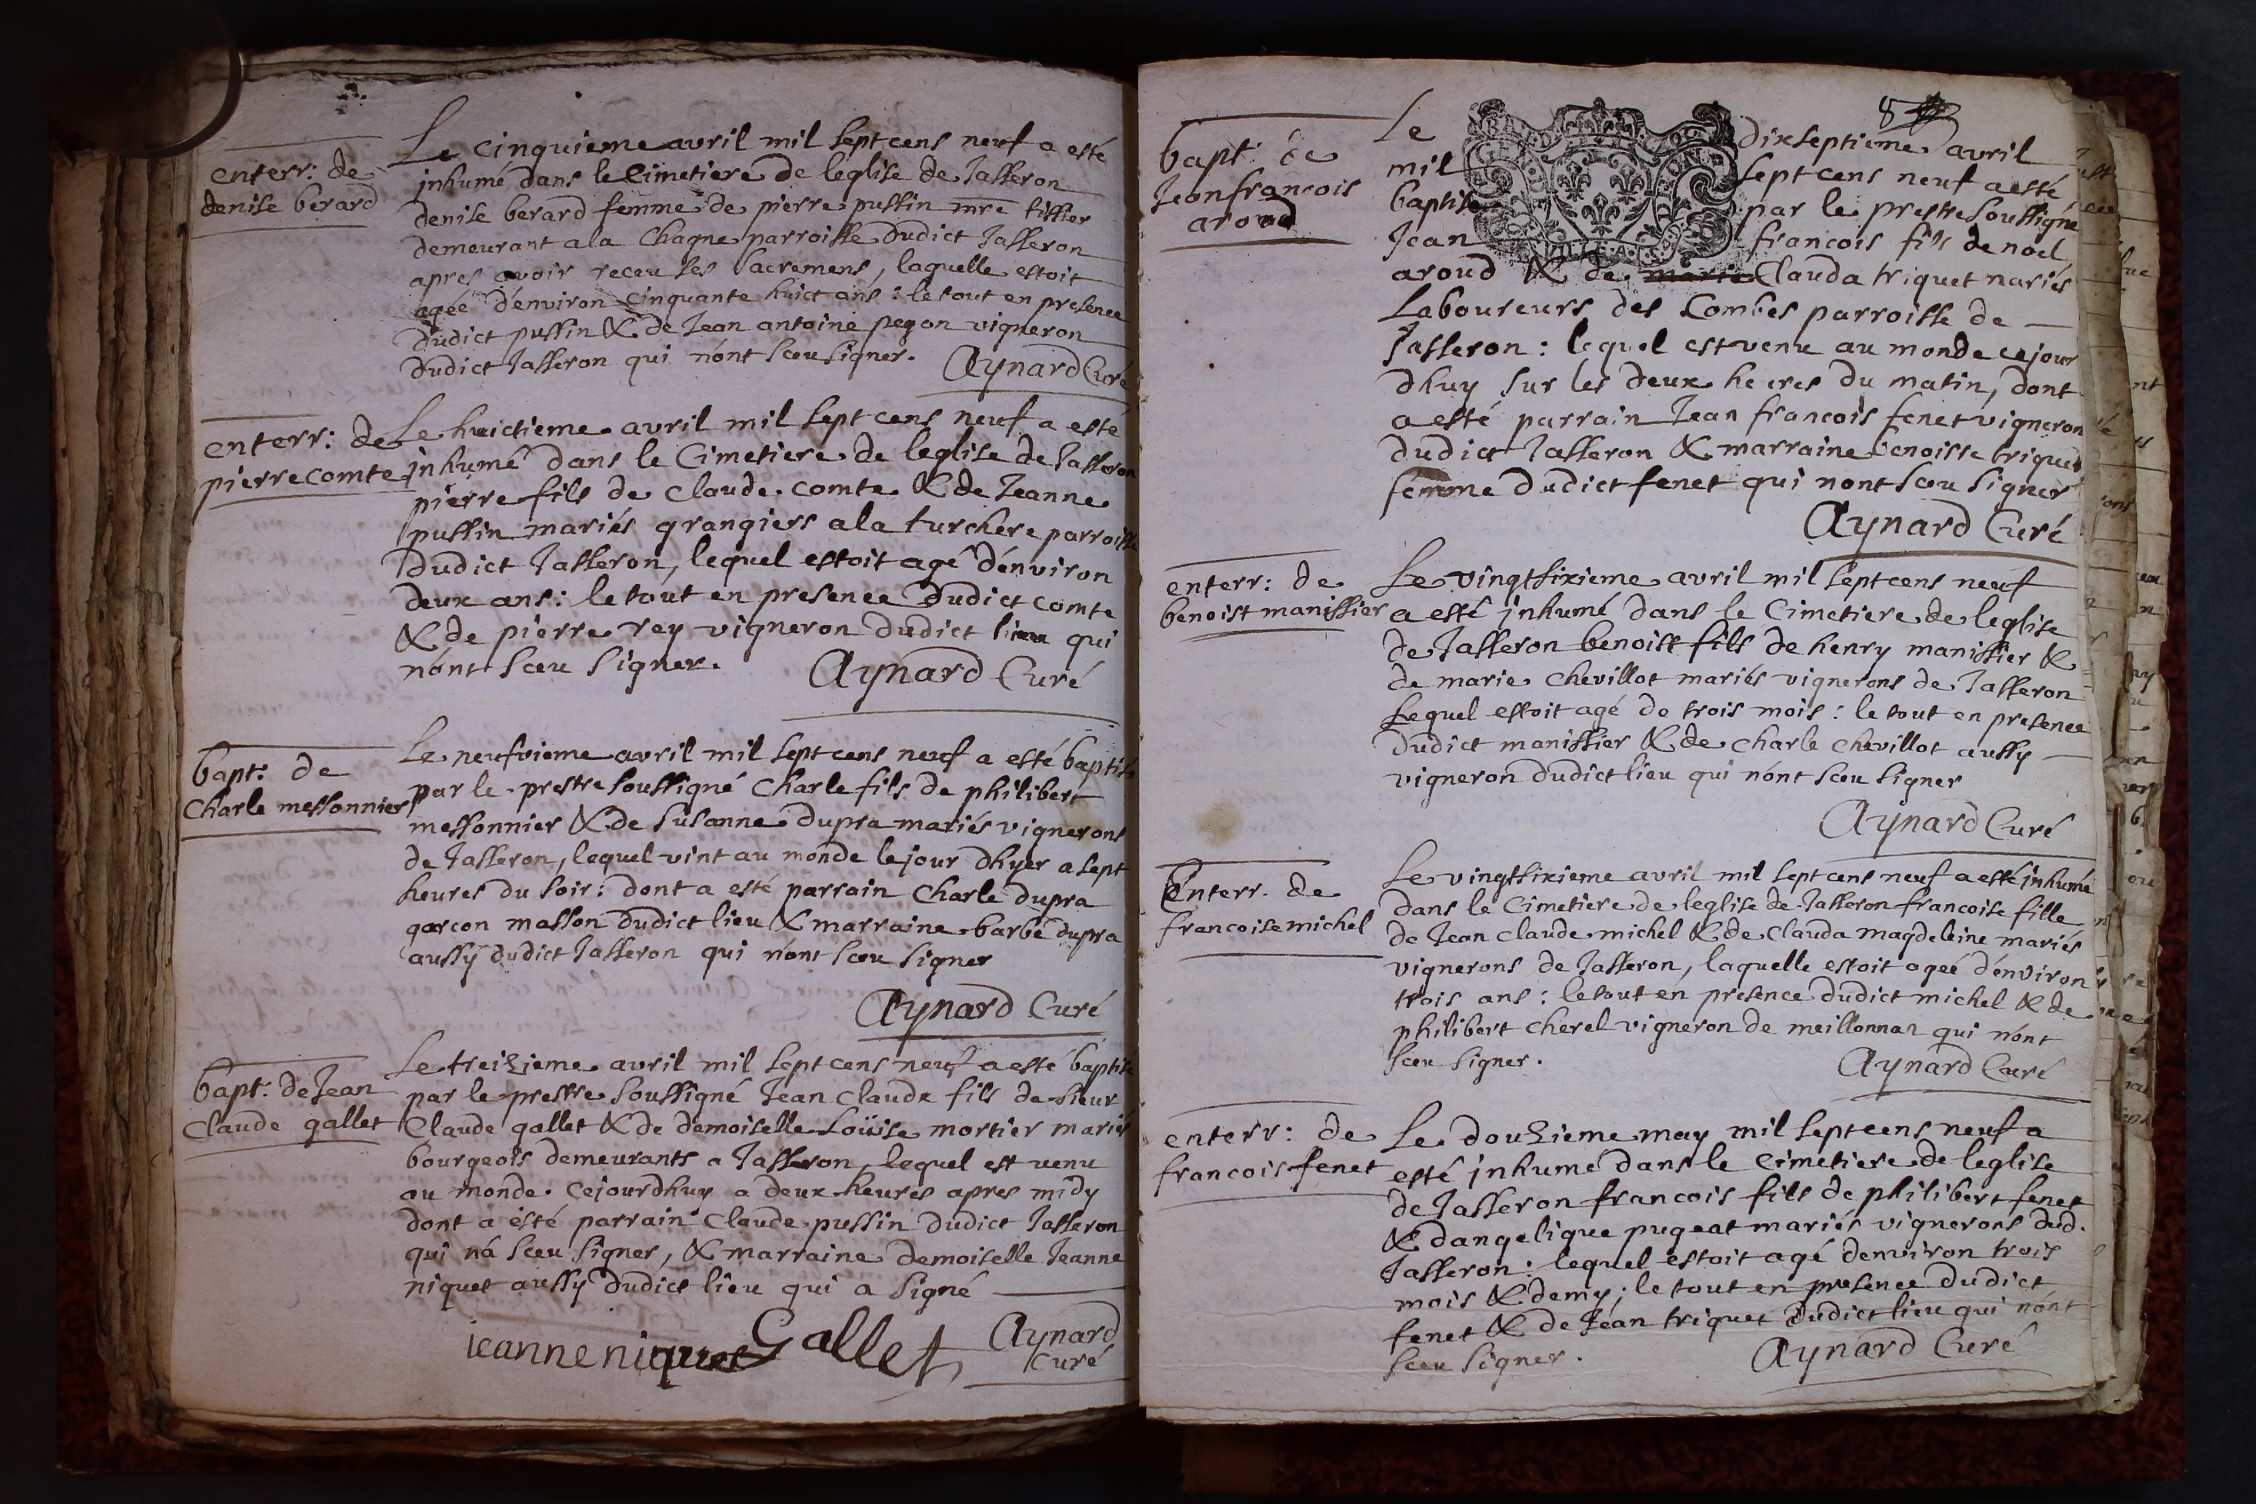 enterr: de
denise berard
Le cinquieme avril mil sept cens neuf a esté
inhumé dans le Cimetiere de leglise de Jasseron
denise berard femme de pierre pussin mre tissier
demeurant a la Chagne parroisse dudict Jasseron
apres avoir receu ses sacremens, laquelle estoit
agée d'environ cinquante huict ans : le tout en presence
dudict pussin & de Jean antoine pegon vigneron
dudict Jasseron qui n'ont sceu signer.
Aynard Curé
enterr: de
pierre comte
Le huictieme avril mil sept cens neuf a esté
inhumé dans le Cimetiere de leglise de Jasseron
pierre fils de claude comte & de Jeanne
pussin mariés grangiers a la turchere parroisse
dudict Jasseron, lequel estoit agé d'environ
deux ans : le tout en presence dudict comte
& de pierre rey vigneron dudict lieu qui
n'ont sceu signer.
Aynard Curé
bapt: de
Charle messonnier
Le neufvieme avril mil sept cens neuf a esté baptisé
par le prestre soussigné Charle fils de philibert
messonnier & de susanne dupra mariés vignerons
de Jasseron, lequel vint au monde le jour dhyer a sept
heures du soir : dont a esté parrain Charle dupra
garcon masson dudict lieu & marraine barbe dupra
aussy dudict Jasseron qui n'ont sceu signer
Aynard Curé
bapt: de Jean
Claude gallet
Le treizieme avril mil sept cens neuf a esté baptisé
par le prestre soussigné Jean claude fils de sieur
Claude gallet & de demoiselle Loüise mortier mariés
bourgeois demeurants a Jasseron, lequel est venu
au monde cejourdhuy a deux heures apres midy
dont a esté parrain Claude pussin dudict Jasseron
qui n'a sceu signer, & marraine demoiselle Jeanne
niquet aussy dudict lieu qui a signé
ieanne niquet Gallet Aynard
Curé
8
bapt: de
Jean francois
aroud
Le dixseptieme avril
mil sept cens neuf a esté
baptisé par le prestre soussigné
Jean francois fils de noel
aroud & de Clauda triquet mariés
Laboureurs des Combes parroisse de
Jasseron : lequel est venu au monde cejour
dhuy sur les deux heures du matin, dont
a esté parrain Jean francois fenet vigneron
dudict Jasseron & marraine benoiste triquet
femme dudict fenet qui nont sceu signer
Aynard Curé
enterr: de
benoist manissier
Le vingtsixieme avril mil sept cens neuf
a esté inhumé dans le Cimetiere de leglise
de Jasseron benoist fils de henry manissier &
de marie chevillot mariés vignerons de Jasseron
Lequel estoit agé de trois mois : le tout en presence
dudict manissier & de charle chevillot aussy
vigneron dudict lieu qui n'ont sceu signer
Aynard Curé
Enterr. de
francoise michel
Le vingtsixieme avril mil sept cens neuf a esté inhumé
dans le Cimetiere de leglise de Jasseron francoise fille
de Jean claude michel & de clauda magdeleine mariés
vignerons de Jasseron, laquelle estoit ageé d'environ
trois ans : le tout en presence dudict michel & de
philibert cherel vigneron de meillonnaz qui n'ont
sceu signer.
Aynard Curé
enterr: de
francois fenet
Le douzieme may mil sept cens neuf a
esté inhumé dans le cimetiere de leglise
de Jasseron francois fils de philibert fenet
& dangelique pugeat mariés vignerons dud.
Jasseron : lequel estoit agé denviron trois
mois & demy : le tout en presence dudict
fenet & de Jean triquet dudict lieu qui n'ont
sceu signer.
Aynard Curé